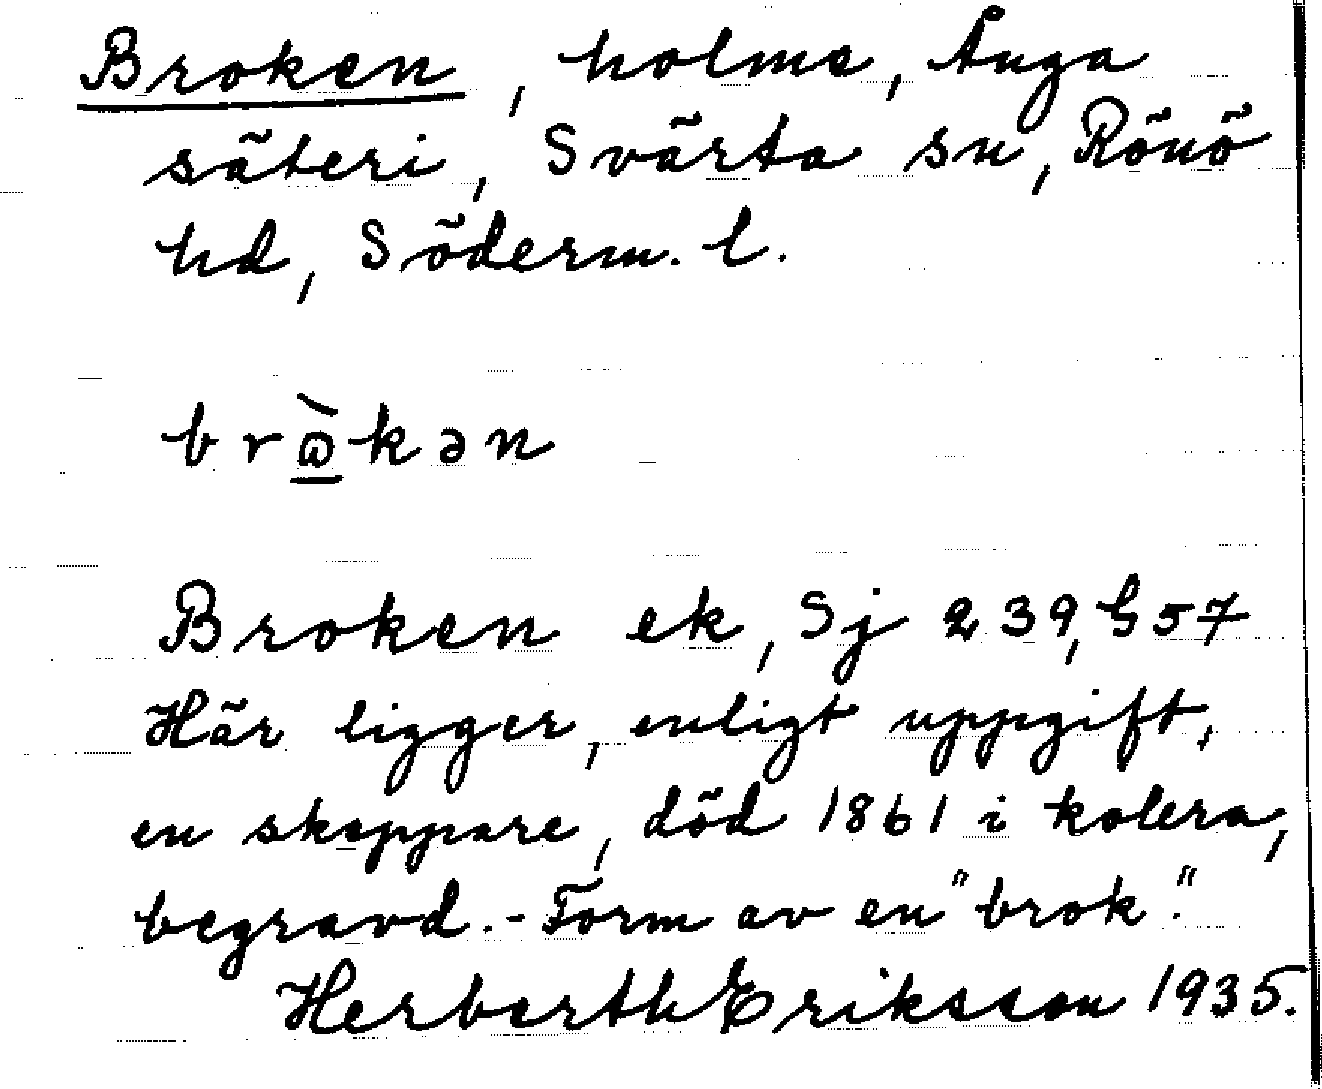 Broken, holme, Ånga
säteri, Svärta sn, Rönö
hd, Söderm. l.
brὼ̱kən
Broken ek, Sj 239, G57
Här ligger, enligt uppgift,
en skeppare, död 1861 i kolera,
begravd. - Form av en "brok".
Herberth Eriksson 1935.